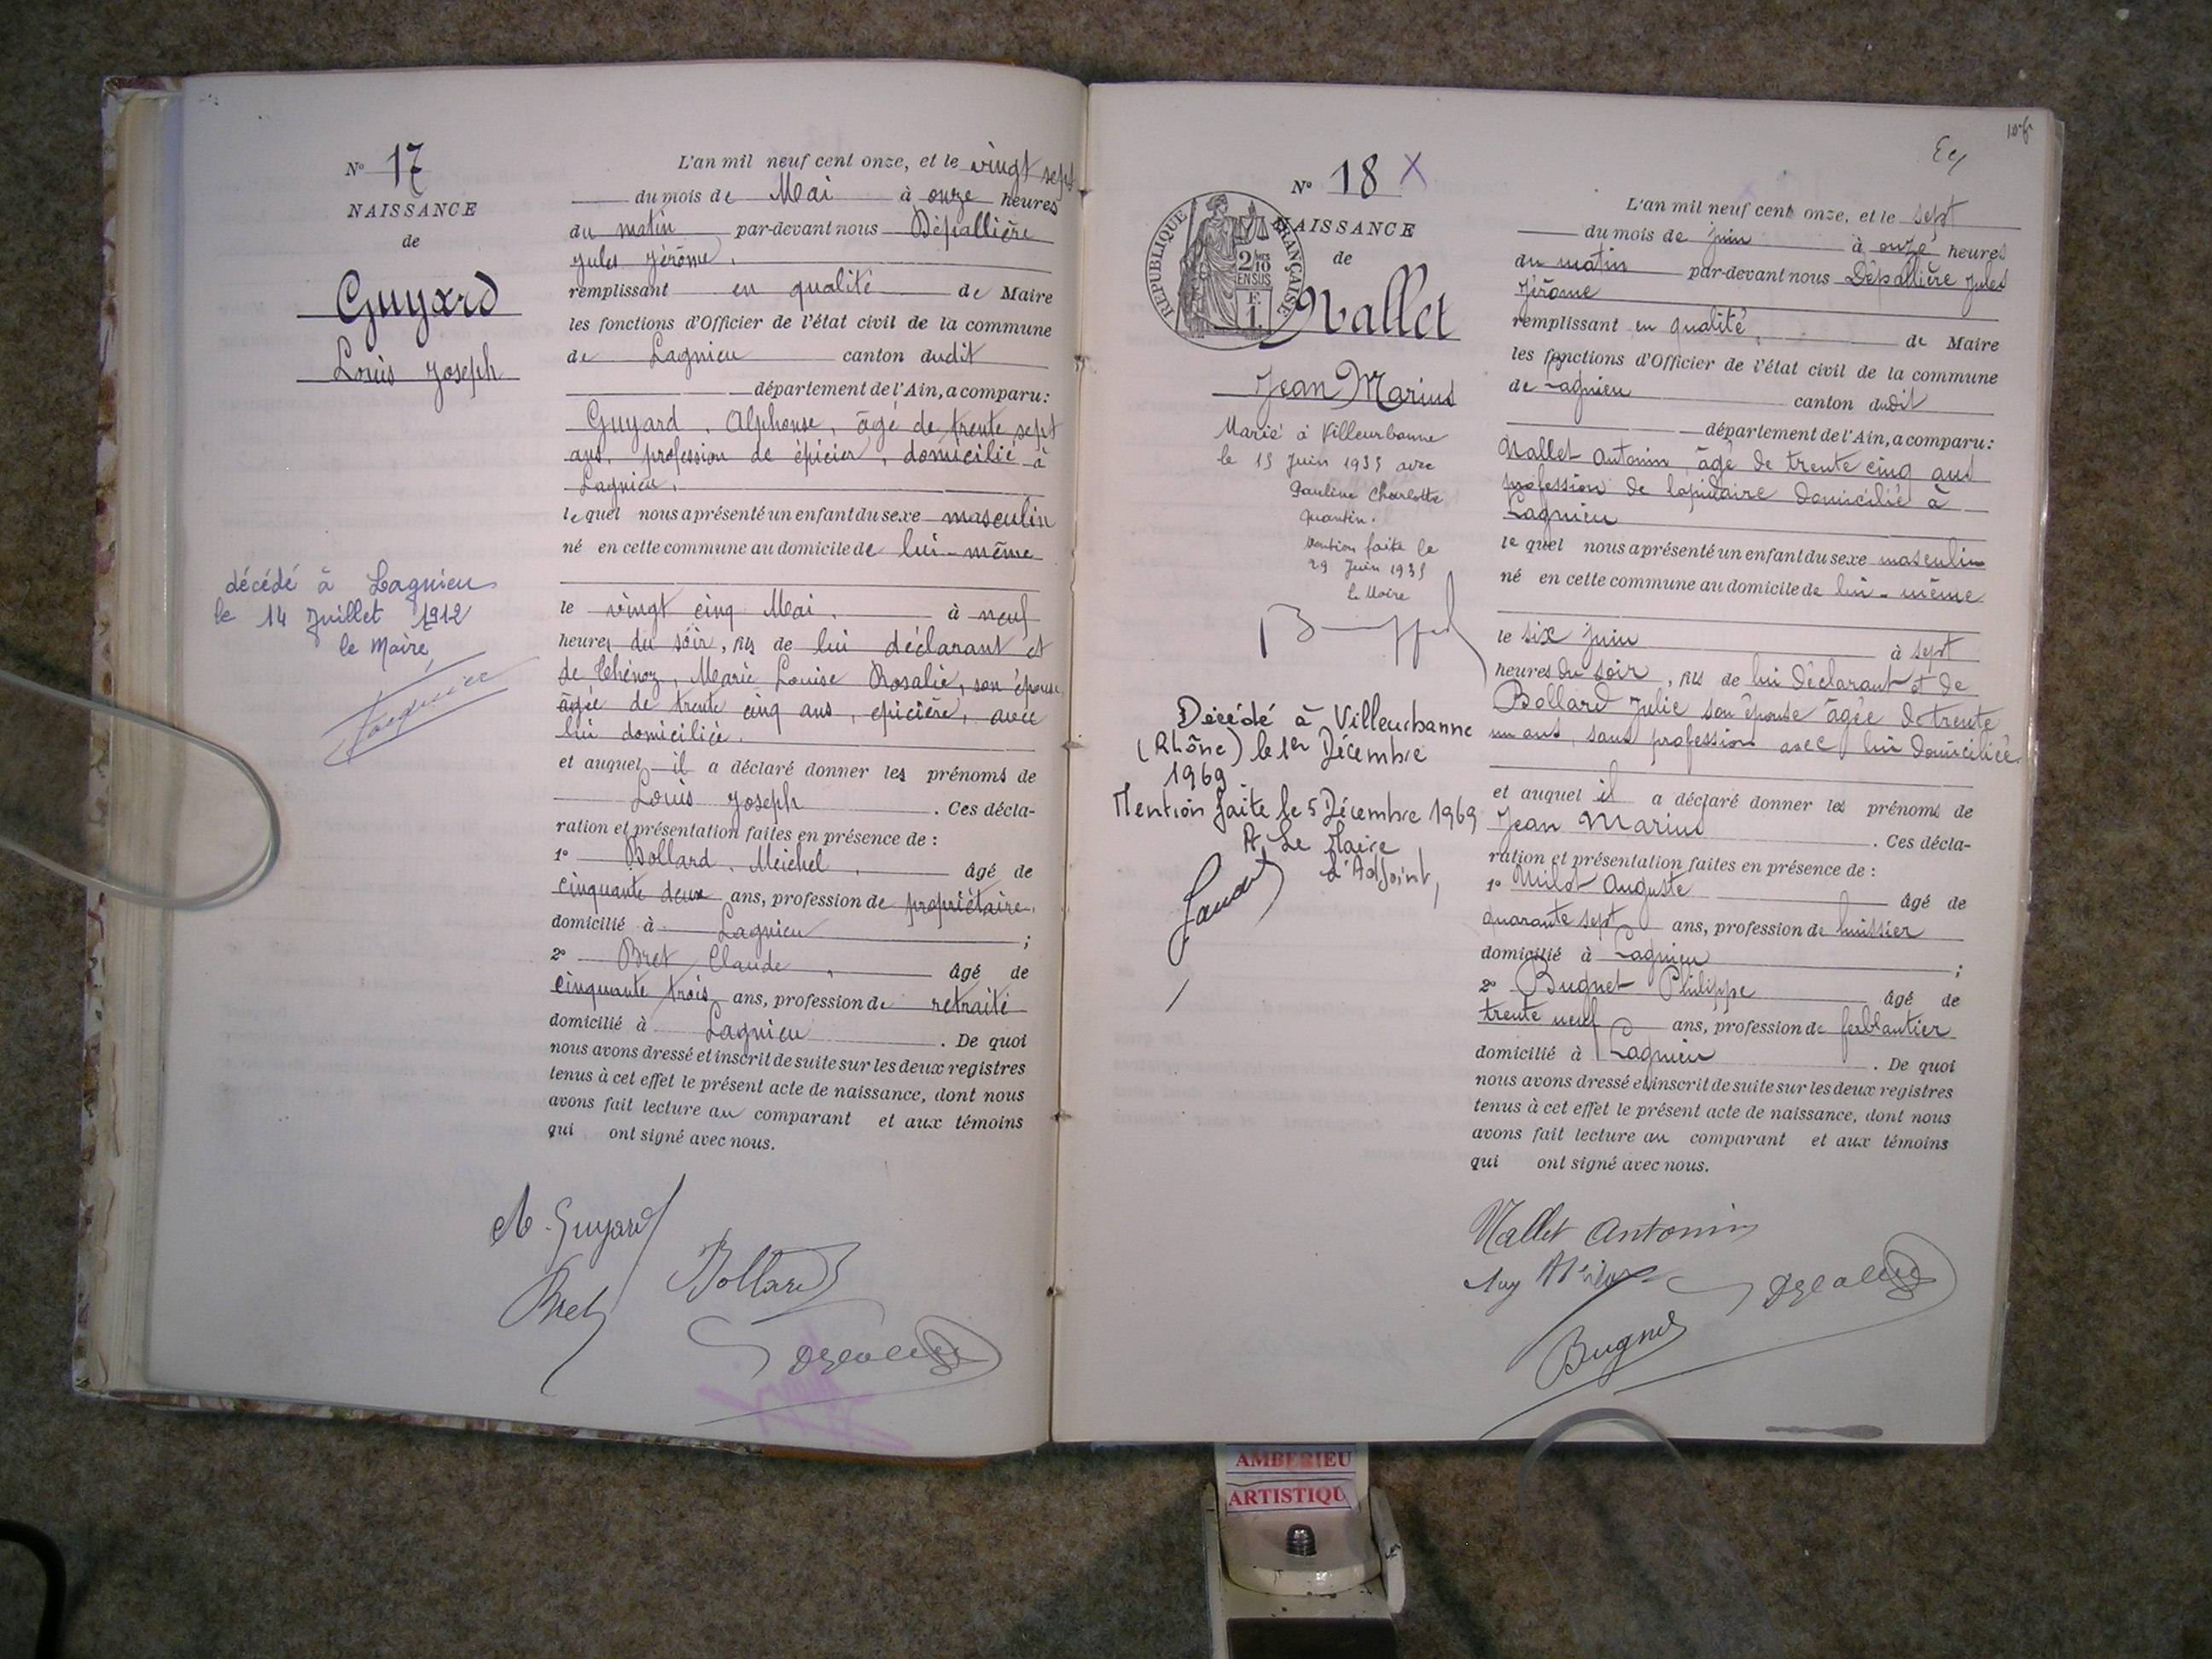 N° 17
NAISSANCE
de
Guyard
Louis Joseph
décédé à Lagnieu
le 14 Juillet 1912
le Maire,
L'an mil neuf cent onze, et le vingt sept
du mois de Mai à onze heures
du matin par-devant nous Dépallière
Jules Jérôme,
remplissant en qualité de Maire
les fonctions d'Officier de l'état civil de la commune
de Lagnieu canton dudit
département de l'Ain, a comparu:
Guyard, Alphonse, âgé de trente sept
ans, profession de épicier, domicilié à
Lagnieu,
lequel nous a présenté un enfant du sexe masculin
né en cette commune au domicile de lui-même
le vingt cinq Mai, à neuf
heures du soir, fils de lui déclarant et
de Thénoz, Marie Louise Rosalie, son épouse,
âgée de trente cinq ans, épicière, avec
lui domiciliée.
et auquel il a déclaré donner les prénoms de
Louis Joseph. Ces décla-
ration et présentation faites en présence de :
1° Bollard, Meichel, âgé de
cinquante deux ans, profession de propriétaire,
domicilié à Lagnieu ;
2° Bret Claude, âgé de
cinquante trois ans, profession de retraité
domicilié à Lagnieu. De quoi
nous avons dressé et inscrit de suite sur les deux registres
tenus à cet effet le présent acte de naissance, dont nous
avons fait lecture au comparant et aux témoins
qui ont signé avec nous.
A. Guyard
Bollard
Bret
N° 18 X
RÉPUBLIQUE FRANÇAISE
2/10 EN SUS
NAISSANCE
de
Nallet
Jean Marius
Marié à Villeurbanne
le 15 Juin 1935 avec
Pauline Charlotte
Quantin.
Mention faite le
29 Juin 1935
Le Maire
Décédé à Villeurbanne
(Rhône) le 1er Décembre
1969
Mention faite le 5 Décembre 1969
P. Le Maire
L'Adjoint,
L'an mil neuf cent onze, et le sept
du mois de juin à onze heures
du matin par-devant nous Dépallière Jules
Jérôme
remplissant en qualité, de Maire
les fonctions d'Officier de l'état civil de la commune
de Lagnieu canton dudit
département de l'Ain, a comparu:
Nallet Antonin, âgé de trente cinq ans
profession de lapidaire domicilié à
Lagnieu
lequel nous a présenté un enfant du sexe masculin
né en cette commune au domicile de lui-même
le six juin à sept
heures du soir, fils de lui déclarant et de
Bollard Julie son épouse âgée de trente
un ans, sans profession avec lui domiciliée.
et auquel il a déclaré donner les prénoms de
Jean Marius. Ces décla-
ration et présentation faites en présence de :
1° Milot Auguste âgé de
quarante sept ans, profession de huissier
domicilié à Lagnieu ;
2° Bugnet Philippe âgé de
trente neuf ans, profession de ferblantier
domicilié à Lagnieu. De quoi
nous avons dressé et inscrit de suite sur les deux registres
tenus à cet effet le présent acte de naissance, dont nous
avons fait lecture au comparant et aux témoins
qui ont signé avec nous.
Nallet Antonin
Bugnet
AMBERIEU
ARTISTIQU